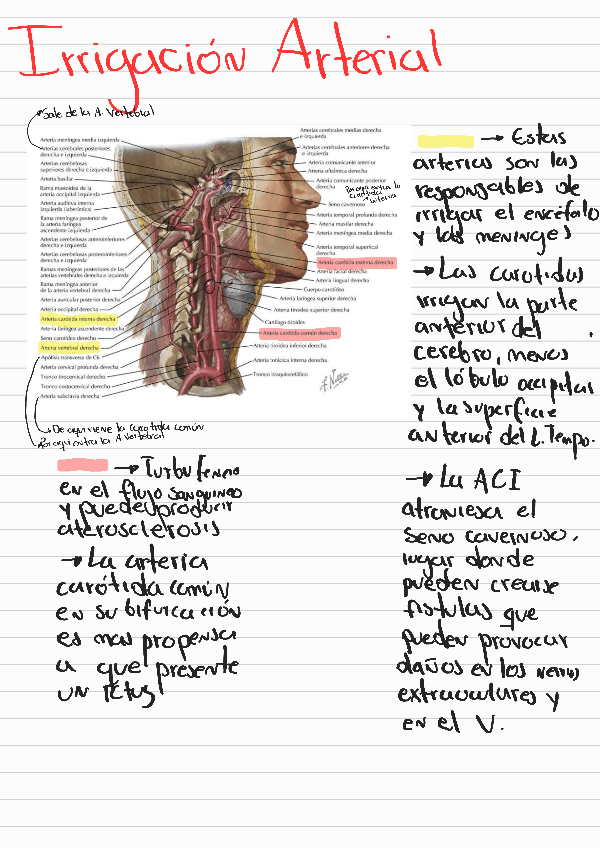 Irrigación Arterial
Sale de la A. Vertebral
Arteria meníngea media izquierda
Arterias cerebrales posteriores
derecha e izquierda
Arterias cerebelosas
superiores derecha e izquierda
Arteria basilar
Rama mastoidea de la
arteria occipital izquierda
Arteria auditiva interna
izquierda (laberíntica)
Rama meníngea posterior de
la arteria faríngea
ascendente izquierda
Arterias cerebelosas anteroinferiores
derecha e izquierda
Arterias cerebelosas posteroinferiores
derecha e izquierda
Ramas meníngeas posteriores de las
arterias vertebrales derecha e izquierda
Rama meníngea anterior
de la arteria vertebral derecha
Arteria auricular posterior derecha
Arteria occipital derecha
Arteria carótida interna derecha
Arteria faríngea ascendente derecha
Seno carotídeo derecho
Arteria vertebral derecha
Apófisis transversa de C6
Arteria cervical profunda derecha
Tronco tirocervical derecho
Tronco costocervical derecho
Arteria subclavia derecha
Arterias cerebrales medias derecha
e izquierda
Arterias cerebrales anteriores derecha
e izquierda
Arteria comunicante anterior
Arteria oftálmica derecha
Arteria comunicante posterior
derecha
Por aquí entra la
carótida
interna
Seno cavernoso
Arteria temporal profunda derecha
Arteria maxilar derecha
Arteria meníngea media derecha
Arteria temporal superficial
derecha
Arteria carótida externa derecha
Arteria facial derecha
Arteria lingual derecha
Cuerpo carotídeo
Arteria laríngea superior derecha
Arteria tiroidea superior derecha
Cartílago tiroides
Arteria carótida común derecha
Arteria tiroidea inferior derecha
Arteria torácica interna derecha
Tronco braquiocefálico
De aquí viene la carótida común
Por aquí entra la A. Vertebral
→ Estas
arterias son las
responsables de
irrigar el encéfalo
y las meninges
→ Las carotidas
irrigan la parte
anterior del
cerebro, menos
el lóbulo occipital
y la superficie
anterior del L. Tempo.
→ La ACI
atraviesa el
seno cavernoso,
lugar donde
pueden crearse
fistulas que
pueden provocar
daños en los nervios
extraoculares y
en el V.
→ Turbulencia
en el flujo sanguineo
y puede producir
aterosclerosis
→ La arteria
carótida común
en su bifurcación
es mas propensa
a que presente
un Ictus